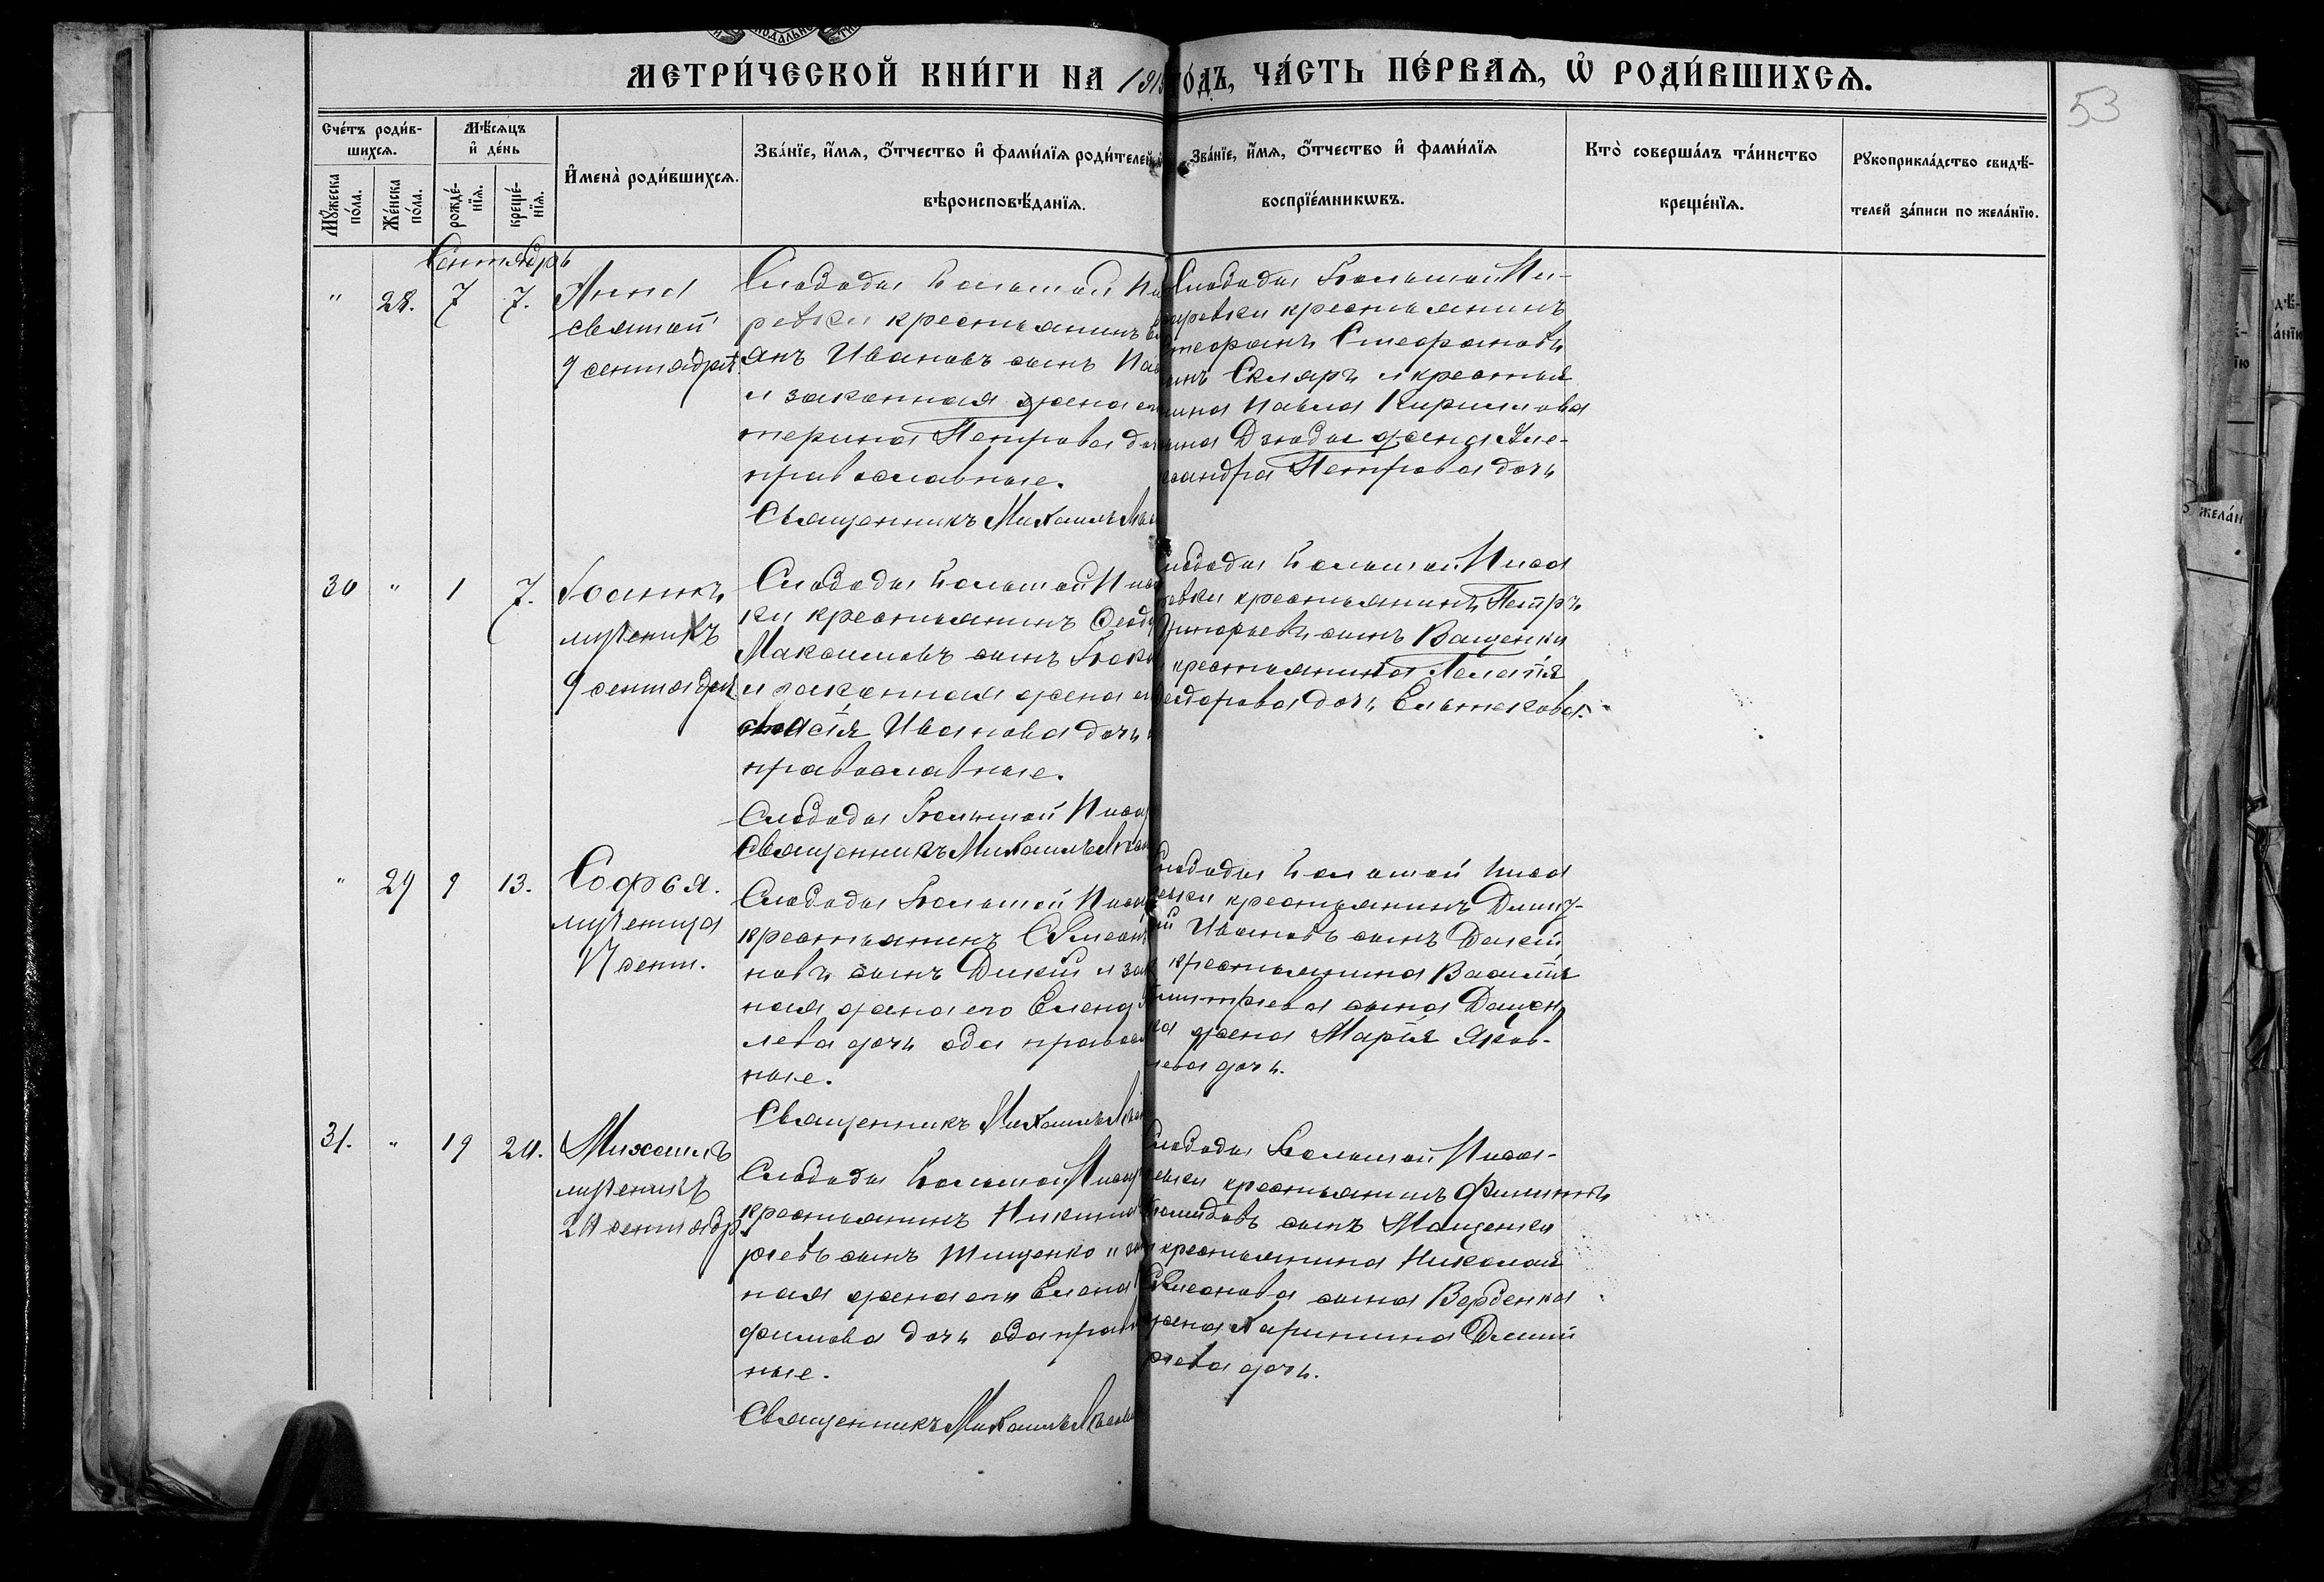 МЕТРИ́ЧЕСКОЙ КНИ́ГИ НА 191 ГО́ДЪ, ЧА́СТЬ ПЕ́РВАѦ, Ѡ РОДИ́ВШИХСѦ.
53
Сче́тъ роди́в-
шихсѧ.
Мꙋ́жеска
по́ла.
Же́нска
по́ла.
Мѣ́сѧцъ
и҆ де́нь
рожде́-
нїѧ.
креще́-
нїѧ.
И҆мена̀ роди́вшихсѧ.
Зва́нїе, и҆́мѧ, ѻ҆́тчество и҆ фами́лїѧ роди́телей,
вѣроисповѣ́данїѧ.
Зва́нїе, и҆́мѧ, ѻ҆́тчество и҆ фами́лїѧ
воспрїе́мникѡвъ.
Кто̀ соверша́лъ та́инство
креще́нїѧ.
Рꙋкоприкла́дство свидѣ́-
телей за́писи по жела́нїю.
Сентябрь
" 28. 7 7. Анна
святой
9 сентября
Слободы Большой Пи
ревки крестьянинъ
анъ Ивановъ сынъ
и законная жена
терина Петрова
православные.
Священникъ Михаилъ
Слободы Большой Пи-
саревки крестьянинъ
Стефанъ Стефановъ
сынъ Скляръ и крестья
нина Павла Кириллова
сына Дзюбы жена Але-
ксандра Петрова дочь
30 " 1 7. Іоаннъ
мученикъ
9 сентября
Слободы Большой Писа
ки крестьянинъ
Максимовъ сынъ
и законная жена
Ивановна дочь
православные.
Слободы Большой Писа
Священникъ Михаилъ
Слободы Большой Писа
ревки крестьянинъ Петръ
Григорьевъ сынъ Ващенки
и крестьянина Пелагія
Ѳеодорова дочь
" 29 9 13. Софья.
мученица
17 сент.
Слободы Большой Писа
крестьянинъ Симеонъ
новъ сынъ Дикій и зак
ная жена его Елена
лева дочь оба правосл
ные.
Священникъ Михаилъ
Слободы Большой Писа
ревки крестьянинъ Димит-
рій Ивановъ сынъ Дикій
и крестьянина Василія
Димитріева сына
ка жена Марія Яков-
лева дочь.
31. " 19 20. Михаилъ
мученикъ
20 сентябр
Слободы Большой Писар
крестьянинъ Никита
ріевъ сынъ Тищенко и зак
ная жена его Елена
фимова дочь оба прав
ные.
Священникъ Михаилъ
Слободы Большой Писа-
ревки крестьянинъ Филиппъ
сынъ Мащенки
и крестьянина Николая
Симеонова сына Вербенка
жена Харитина Димит
ріева дочь.